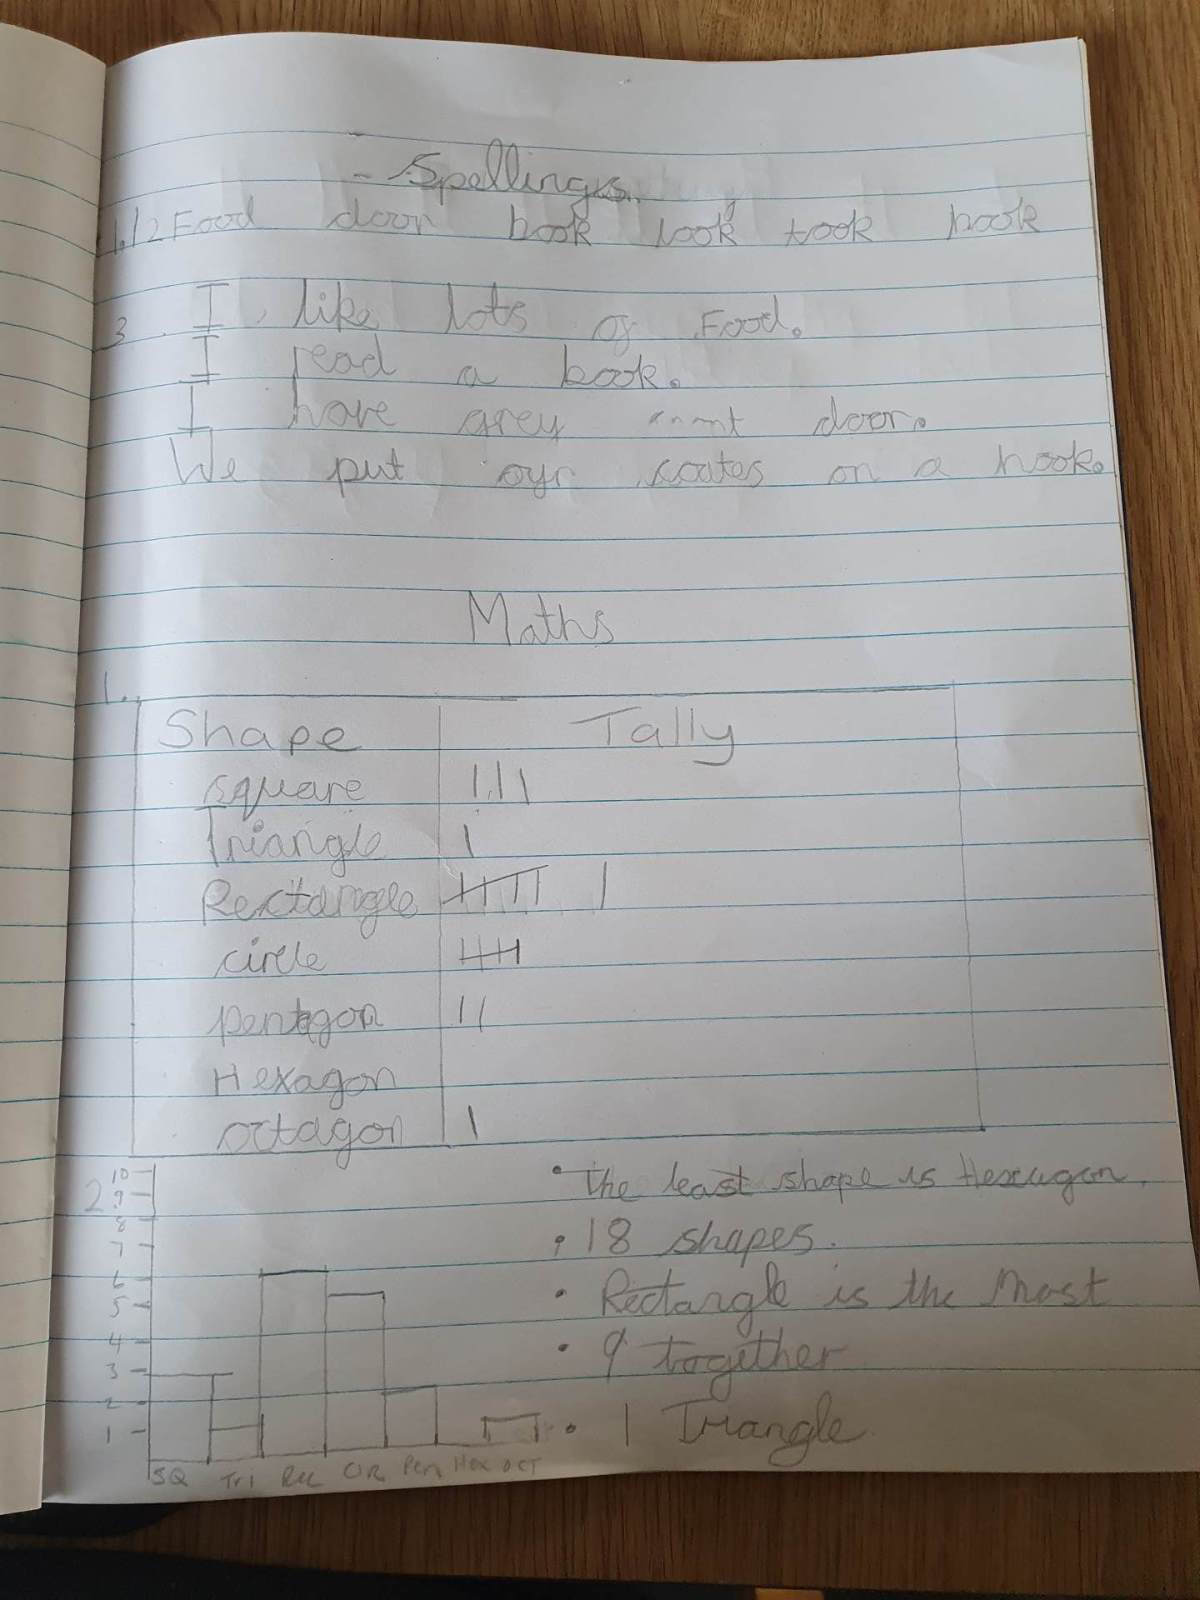 - Spellings.
1./2 Food door book look took hook
3 I like lots of Food.
I read a book.
I have grey door.
We put oyr coates on a hook.
Maths
1.
Shape Tally
square
Triangle
Rectangle
circle
pentagon
Hexagon
octagon
2.
10
9
8
7
6
5
4
3
2
1
SQ Tri Rec CIR Pen Hex OCT
• The least shape is Hexagon.
• 18 shapes.
• Rectangle is the most
• 9 together
• 1 Triangle